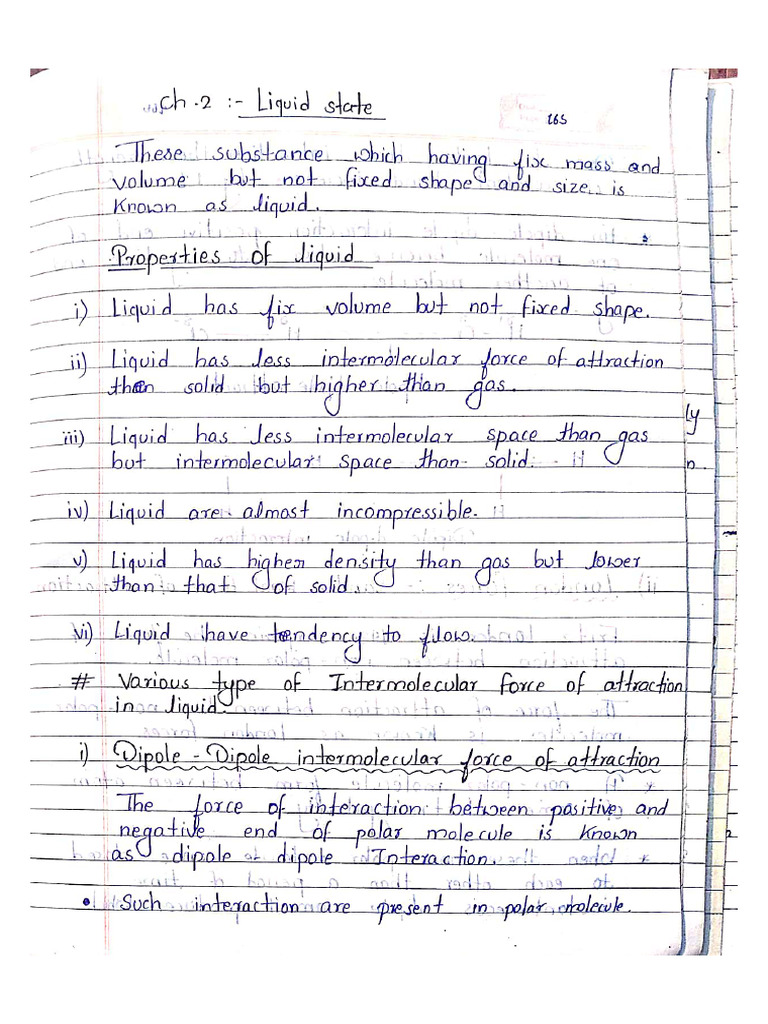 Ch.2 :- Liquid state
165
These substance which having fix mass and
volume but not fixed shape and size is
known as liquid.
Properties of liquid
i) Liquid has fix volume but not fixed shape.
ii) Liquid has less intermolecular force of attraction
than solid but higher than gas.
iii) Liquid has less intermolecular space than gas
but intermolecular space than solid.
iv) Liquid are almost incompressible.
v) Liquid has higher density than gas but lower
than that of solid.
vi) Liquid have tendency to flow.
# Various type of Intermolecular force of attraction
in liquid.
i) Dipole - Dipole intermolecular force of attraction
The force of interaction between positive and
negative end of polar molecule is known
as dipole to dipole Interaction.
• Such interaction are present in polar molecule.
ly
n.